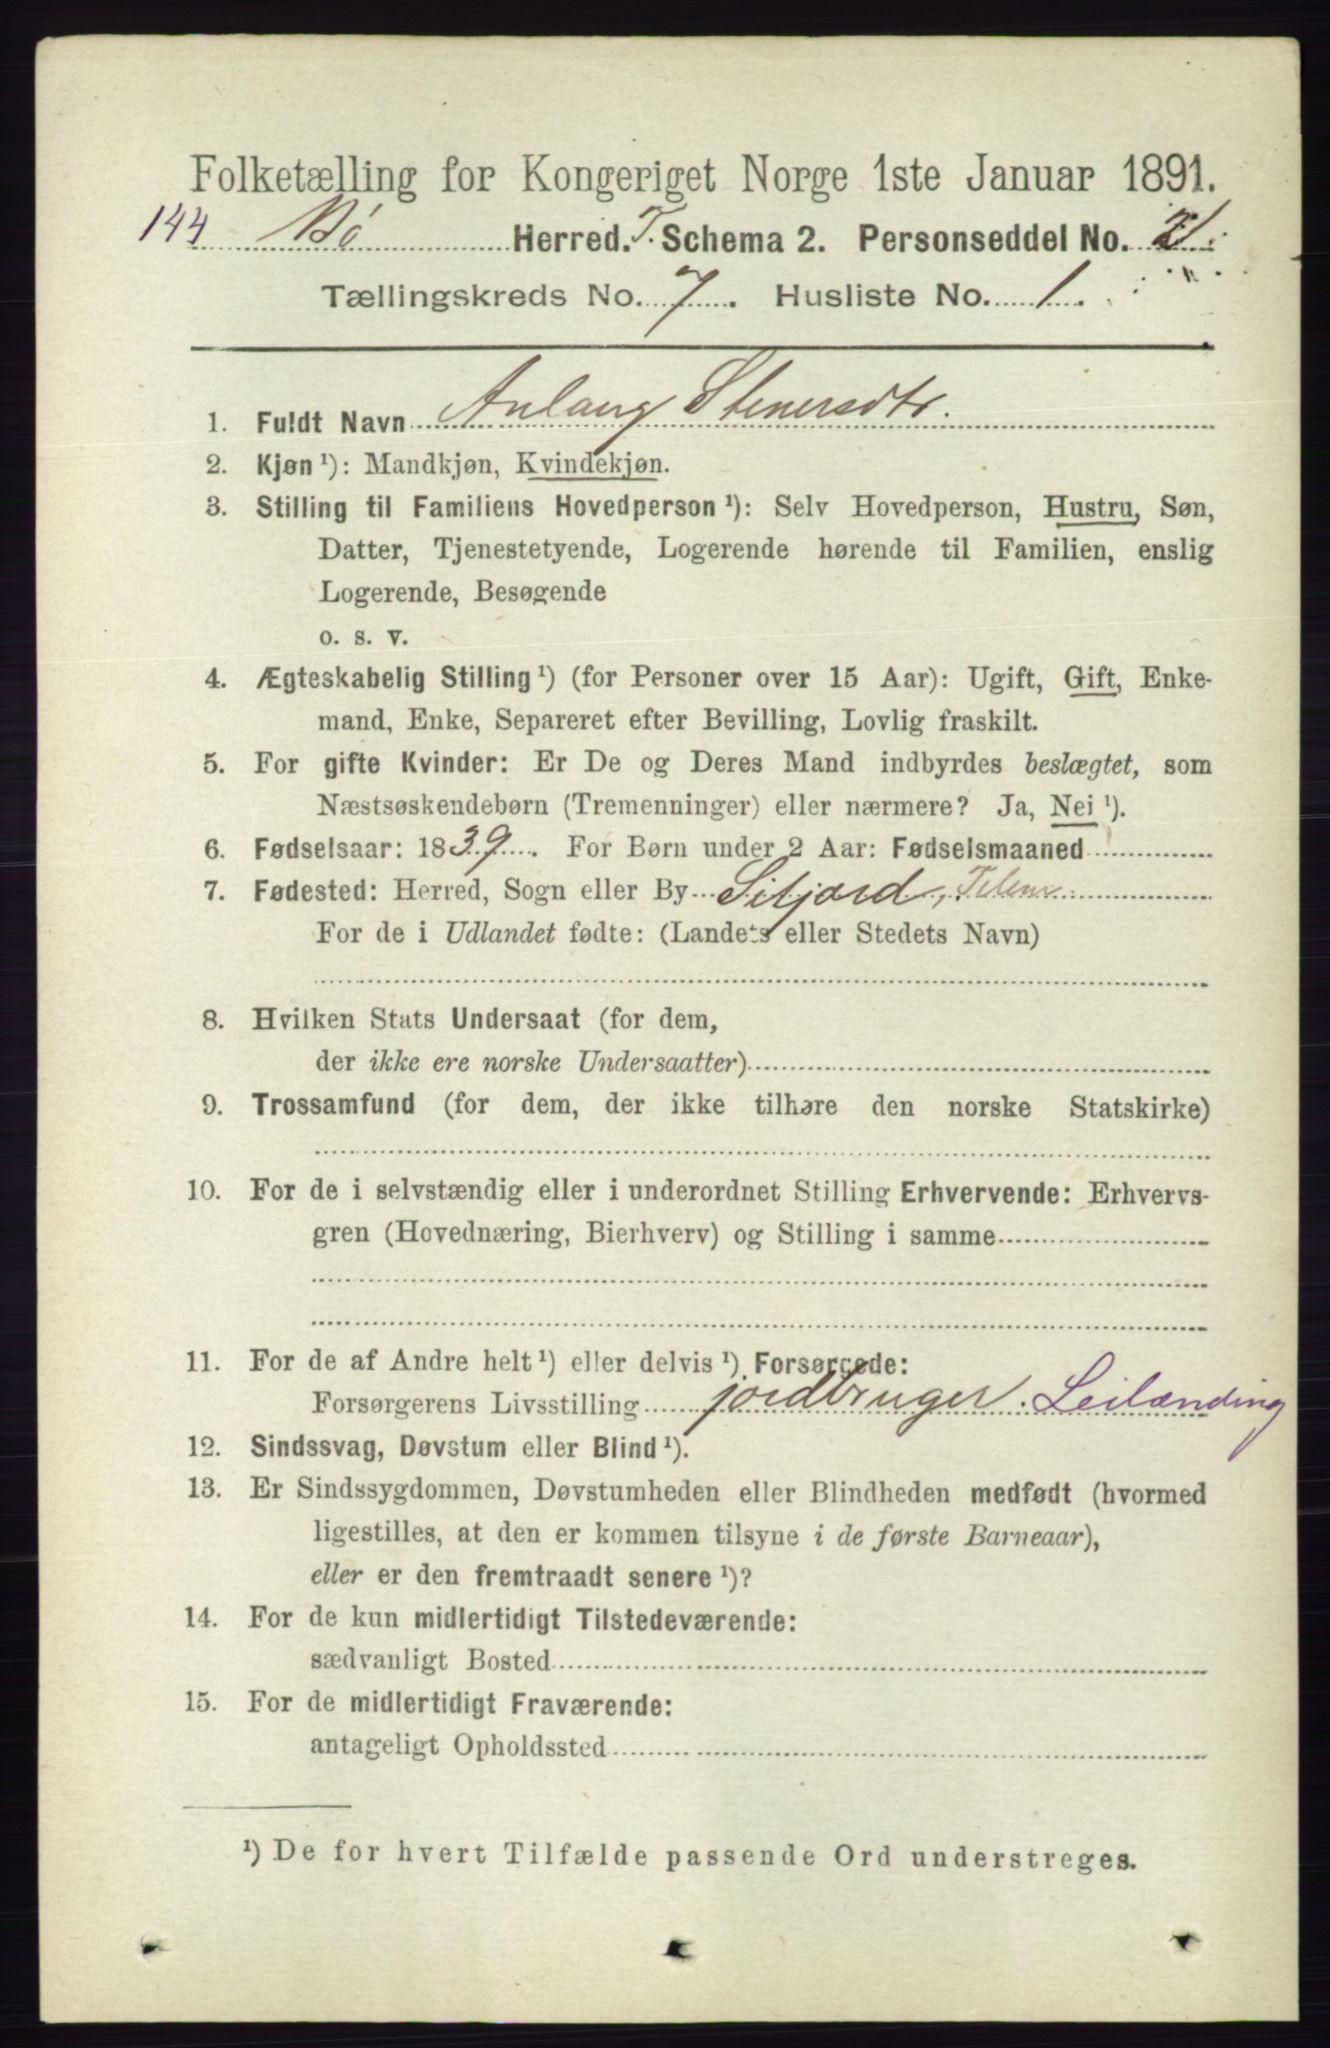 Folketælling for Kongeriget Norge 1ste Januar 1891.
144 Bø Herred. T. Schema 2. Personseddel No.
Tællingskreds No. 7. Husliste No. 1.
1. Fuldt Navn Anlaug Stenersdtr.
2. Kjøn ¹): Mandkjøn, Kvindekjøn.
3. Stilling til Familiens Hovedperson ¹): Selv Hovedperson, Hustru, Søn,
Datter, Tjenestetyende, Logerende hørende til Familien, enslig
Logerende, Besøgende
o. s. v.
4. Ægteskabelig Stilling ¹) (for Personer over 15 Aar): Ugift, Gift, Enke-
mand, Enke, Separeret efter Bevilling, Lovlig fraskilt.
5. For gifte Kvinder: Er De og Deres Mand indbyrdes beslægtet, som
Næstsøskendebørn (Tremenninger) eller nærmere? Ja, Nei ¹).
6. Fødselsaar: 1839. For Børn under 2 Aar: Fødselsmaaned
7. Fødested: Herred, Sogn eller By Sitjord, Telem
For de i Udlandet fødte: (Landets eller Stedets Navn)
8. Hvilken Stats Undersaat (for dem,
der ikke ere norske Undersaatter)
9. Trossamfund (for dem, der ikke tilhøre den norske Statskirke)
10. For de i selvstændig eller i underordnet Stilling Erhvervende: Erhvervs-
gren (Hovednæring, Bierhverv) og Stilling i samme
11. For de af Andre helt ¹) eller delvis ¹) Forsørgede:
Forsørgerens Livsstilling jordbruger. Leilænding
12. Sindssvag, Døvstum eller Blind ¹).
13. Er Sindssygdommen, Døvstumheden eller Blindheden medfødt (hvormed
ligestilles, at den er kommen tilsyne i de første Barneaar),
eller er den fremtraadt senere ¹)?
14. For de kun midlertidigt Tilstedeværende:
sædvanligt Bosted
15. For de midlertidigt Fraværende:
antageligt Opholdssted
¹) De for hvert Tilfælde passende Ord understreges.